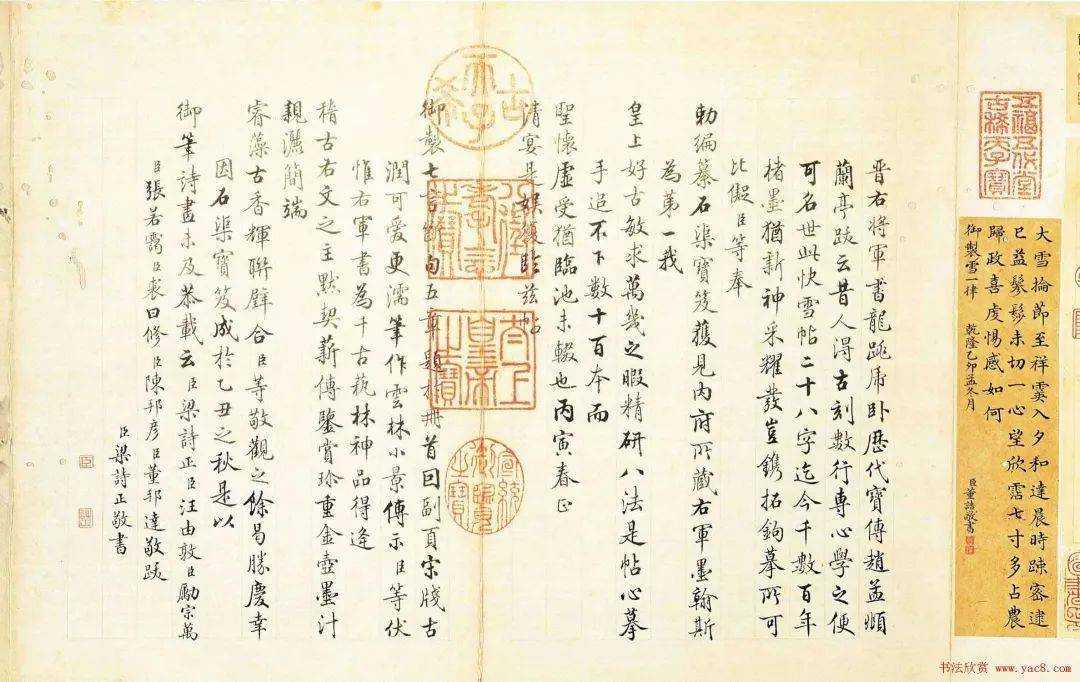 五福五代堂古稀天子寶
大雪掄節至祥霙入夕和達晨時疎密逮
已益鬖髿未切一心望欣霑七寸多占農
歸政喜虔惕感如何
御製雪一律 乾隆乙卯孟冬月
臣董誥敬書
晉右將軍書龍跳虎卧歷代寶傳趙孟頫
蘭亭跋云昔人得古刻數行專心學之便
可名世此快雪帖二十八字迄今千數百年
楮墨猶新神采耀發豈鐫拓鉤摹所可
比儗臣等奉
勅編纂石渠寶笈獲見内府所藏右軍墨翰斯
為第一我
皇上好古敏求萬幾之暇精研八法是帖心摹
手追不下數十百本而
聖懷虛受猶臨池未輟也丙寅春正
清宴是娛復臨茲帖
御製七言斷句五章題於冊首回副頁宋牋古
潤可愛更濡筆作雲林小景傳示臣等伏
惟右軍書為千古藝林神品得逢
稽古右文之主默契薪傳鑒賞珍重金壺墨汁
親灑簡端
睿藻古香輝聯璧合臣等敬觀之餘曷勝慶幸
因石渠寶笈成於乙丑之秋是以
御筆詩畫未及恭載云臣梁詩正臣汪由敦臣勵宗萬
臣張若靄臣裘曰修臣陳邦彥臣董邦達敬跋
臣梁詩正敬書
古希天子
八徵耄念之寶
太上皇帝之寶
宣統御覽之寶
书法欣赏 www.yac8.com